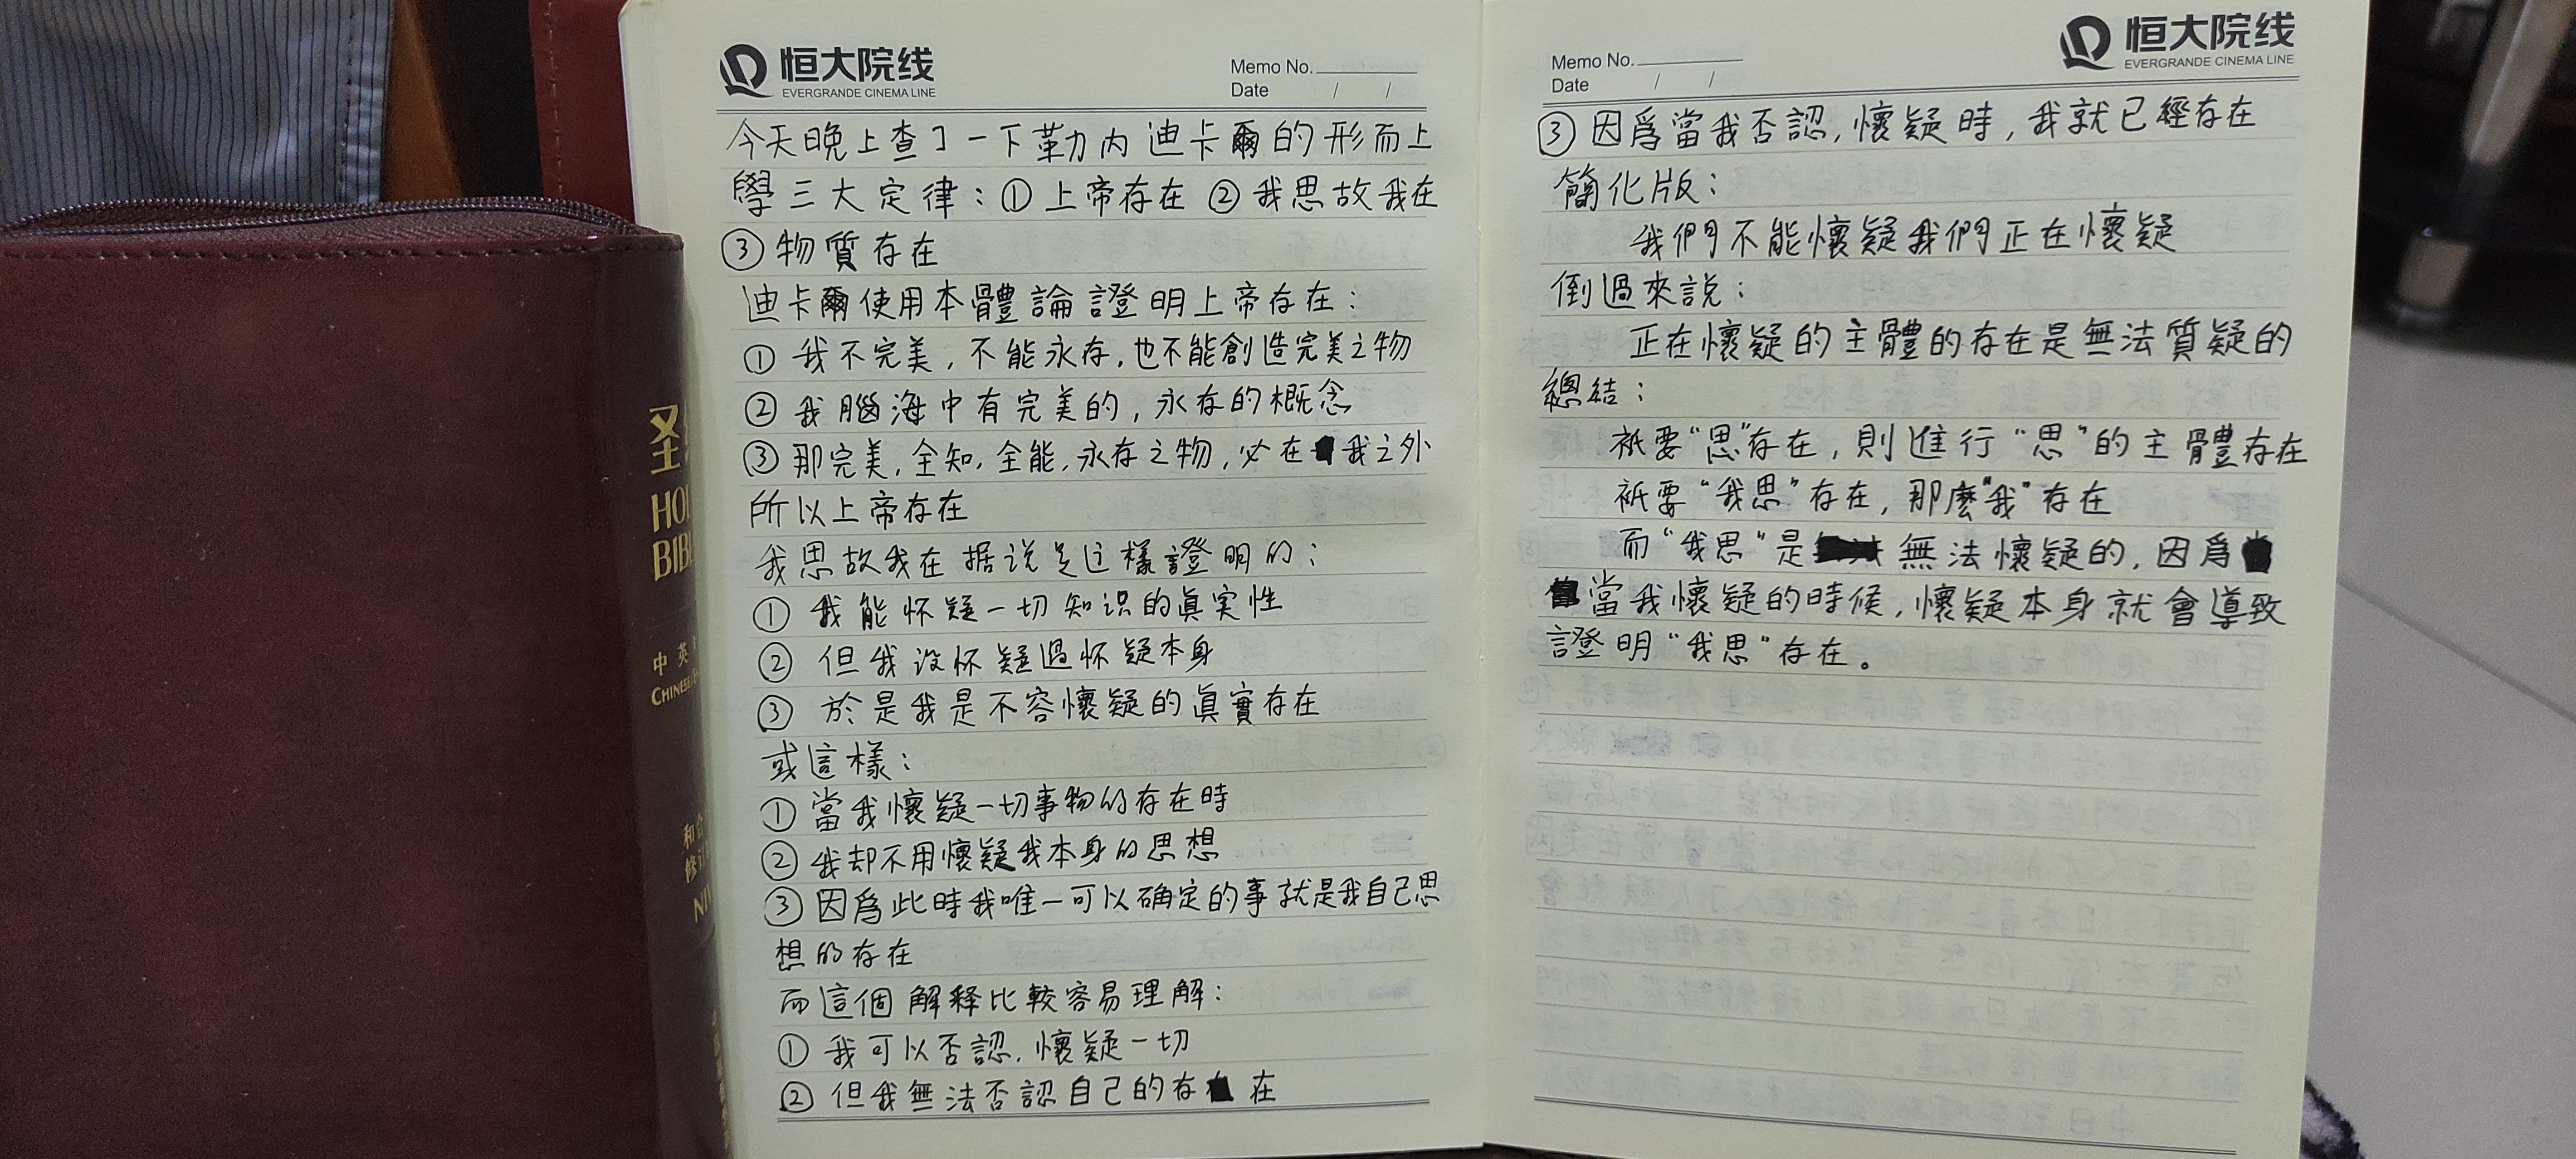 圣
HOL
BIBL
中 英
CHINESE/E
和合
修订
NIV
恒大院线
EVERGRANDE CINEMA LINE
Memo No.
Date / /
今天晚上查了一下勒内迪卡爾的形而上
學三大定律：① 上帝存在 ② 我思故我在
③ 物質存在
迪卡爾使用本體論證明上帝存在：
① 我不完美，不能永存，也不能創造完美之物
② 我腦海中有完美的，永存的概念
③ 那完美，全知，全能，永存之物，必在我之外
所以上帝存在
我思故我在据说是这樣證明的：
① 我能怀疑一切知识的真実性
② 但我没怀疑過怀疑本身
③ 於是我是不容懷疑的真實存在
或這樣：
① 當我懷疑一切事物的存在時
② 我却不用懷疑我本身的思想
③ 因爲此時我唯一可以确定的事就是我自己思
想的存在
而這個解释比較容易理解：
① 我可以否認，懷疑一切
② 但我無法否認自己的存在
恒大院线
EVERGRANDE CINEMA LINE
Memo No.
Date / /
③ 因爲當我否認，懷疑時，我就已經存在
簡化版：
我們不能懷疑我們正在懷疑
倒過來説：
正在懷疑的主體的存在是無法質疑的
總結：
衹要“思”存在，則進行“思”的主體存在
衹要“我思”存在，那麽“我”存在
而“我思”是無法懷疑的，因爲
當我懷疑的時候，懷疑本身就會導致
證明“我思”存在。